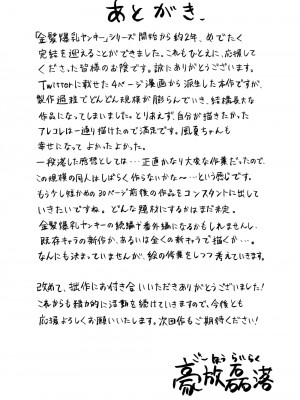 あとがき、
「金髪爆乳ヤンキー」シリーズ開始から約2年、めでたく
完結を迎えることができました。これもひとえに、応援して
くださった皆様のお陰です。誠にありがとうございます。
Twitterに載せた4ページ漫画から派生した本作ですが、
製作過程でどんどん規模が膨らんでいき、結構長大な
作品になってしまいました。とりあえず、自分が描きたかった
アレコレは一通り描けたので満足です。風夏ちゃんも
幸せになって よかったよかった。
一段落した感想としては…正直かなり大変な作業だったので、
この規模の同人はしばらく作らないかな〜…という感じです。
もう少し短かめの30ページ前後の作品をコンスタントに出して
いきたいですね。どんな題材にするかはまだ未定。
金髪爆乳ヤンキーの続編や番外編になるかもしれませんし、
既存キャラの新作か、あるいは全くの新キャラで描くか…。
なんにも決まっていませんが、絵の作業をしつつ考えていきます。
改めて、拙作にお付き合いいただきありがとうございました!
これからも精力的に活動を続けていきますので、今後とも
応援よろしくお願いいたします。次回作もご期待ください!
ごう ほう らい らく
豪放磊落